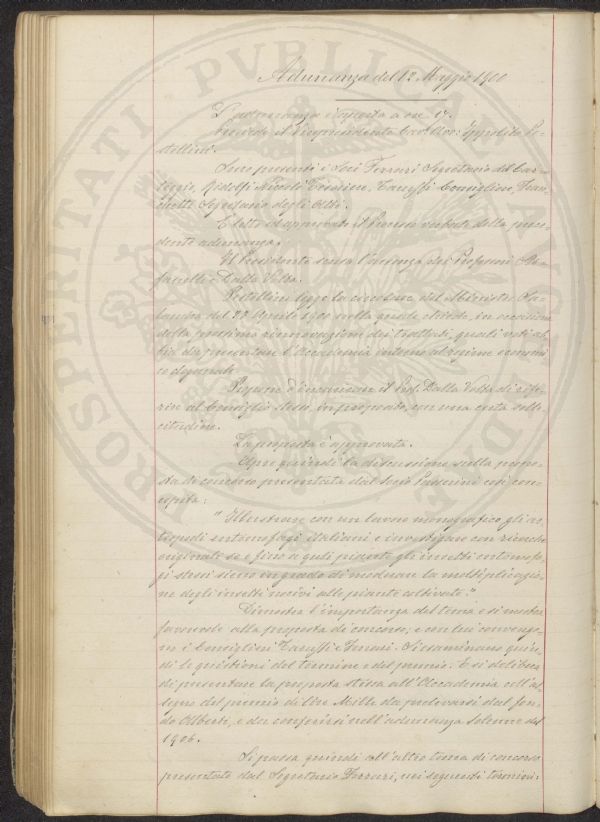 Adunanza del 12 Maggio 1900
L'adunanza è aperta a ore 17.
Presiede il Vicepresidente Cav. Avv. Ippolito Pe-
stellini.
Sono presenti i Soci Ferrari Segretario del Car-
teggio, Ridolfi Niccolò Tesoriere, Taruffi Consigliere, Fran-
ceschi Segretario degli Atti.
È letto ed approvato il Processo verbale della prece-
dente adunanza.
Il Presidente scusa l'assenza dei Professori
e Dalla Volta.
Pestellini legge la circolare del Ministro Sa-
landra del 28 Aprile 1900 nella quale chiede, in occasione
della prossima rinnovazione dei trattati, quali voti ab-
bia da presentare l'Accademia intorno al regime economi-
co doganale
Propone d'incaricare il Prof. Dalla Volta di rife-
rire al Consiglio stesso, in proposito, con una certa solle-
citudine.
La proposta è approvata.
Apre quindi la discussione sulla propo-
sta di concorso presentata dal Socio Passerini così con-
cepita:
"Illustrare con un lavoro monografico gli ar-
tropodi entomofagi italiani e investigare con ricerche
originali se e fino a qual punto gli insetti entomofa-
gi stessi sieno in grado di moderare la moltiplicazio-
ne degli insetti nocivi alle piante coltivate."
Dimostra l'importanza del tema e si mostra
favorevole alla proposta di concorso; e con lui convengo-
no i Consiglieri Taruffi e Ferrari. Si esaminano quin-
di le quistioni del termine e del premio. E si delibera
di presentare la proposta stessa all'Accademia coll'as-
segno del premio di Lire Mille da prelevarsi dal fon-
do Alberti, e da conferirsi nell'adunanza solenne del
1906.
Si passa quindi all'altro tema di concorso
presentato dal Segretario Ferrari, nei seguenti termini:
PROSPERITATI PVBLICAE AVGENDAE